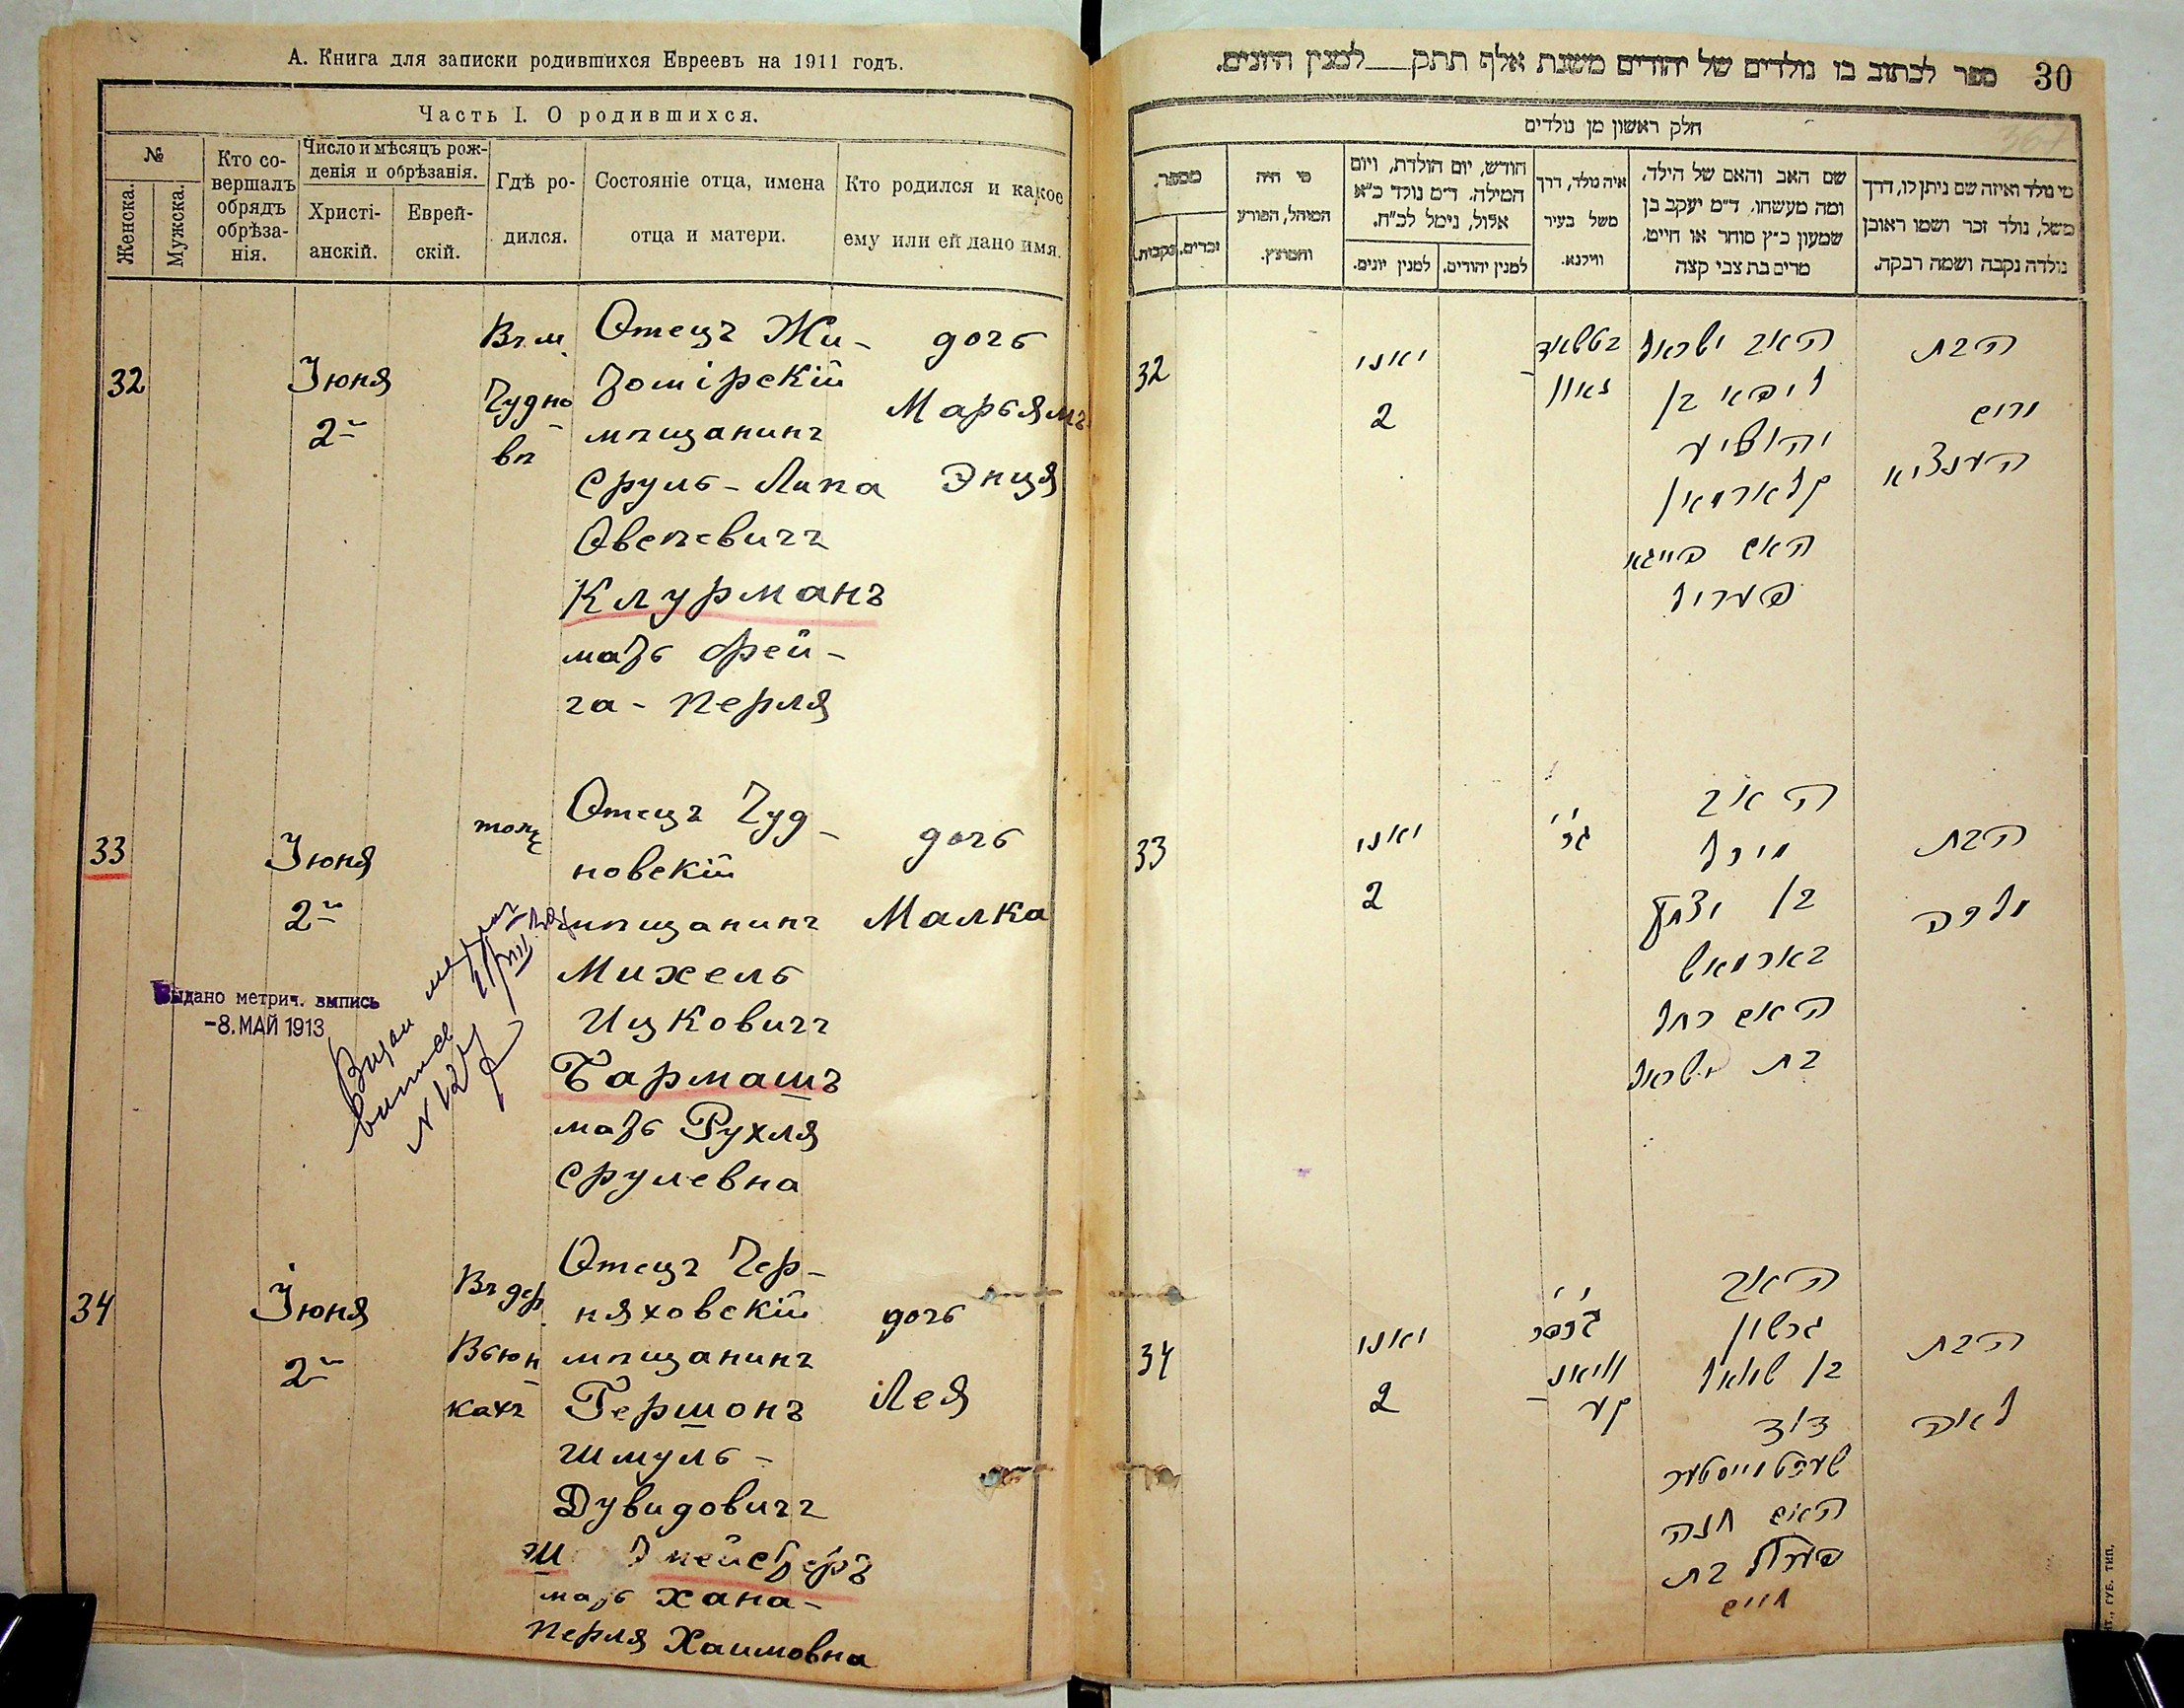 А. Книга для записки родившихся Евреевъ на 1911 годъ.
Часть I. О родившихся.
№
Женска.
Мужска.
Кто со-
вершалъ
обрядъ
обрѣза-
нія.
Число и мѣсяцъ рож-
денія и обрѣзанія.
Христі-
анскій.
Еврей-
скій.
Гдѣ ро-
дился.
Состояніе отца, имена
отца и матери.
Кто родился и какое
ему или ей дано имя.
32
Іюня
2
Въ м.
Чудно
вѣ
Отецъ Жи-
томірскій
мѣщанинъ
Сруль-Липа
Овсѣевичъ
Клурманъ
мать Фрей-
га-Перля
дочь
Марьямъ
Энця
33
Іюня
2
Отецъ Чуд-
новскій
мѣщанинъ
Михель
Ицковичъ
Бармашъ
мать Рухля
Срулевна
дочь
Малка
Выдано метрич. выпись
-8. МАЙ 1913
34
Іюня
2
Въ дер.
Вьюн
кахъ
Отецъ Чер-
няховскій
мѣщанинъ
Гершонъ
Шмуль-
Дувидовичъ
мать Хана-
Перля Хаимовна
дочь
Лея
ספר לכתוב בו נולדים של יהודים משנת אלף תתק__למנין היונים.
30
חלק ראשון מן נולדים
מספר.
נקבות.
זכרים.
מי היה
המוהל, הפורע
והמוצץ.
חודש, יום הולדת, ויום
המילה. ד״מ נולד כ״א
אלול, נימל לכ״ח.
למנין יונים.
למנין יהודים.
איה נולד, דרך
משל בעיר
ווילנא.
שם האב והאם של הילד,
ומה מעשהו. ד״מ יעקב בן
שמעון כ״ץ סוחר או חייט.
מרים בת צבי קצה
מי נולד ואיזה שם ניתן לו, דרך
משל, נולד זכר ושמו ראובן
נולדה נקבה ושמה רבקה.
32
יאני
2
האב ישראל
ליפא בן
יהושיע
קלארמאן
האם פייגא
פעריל
הבת
מרים
הענציא
33
יאני
2
האב
מיכל
בן יצחק
בארמאש
האם רחל
בת ישראל
הבת
מלכה
34
יאני
2
האב
גרשון
בן שמואל
דוד
האם חנה
פערל בת
חיים
הבת
לאה